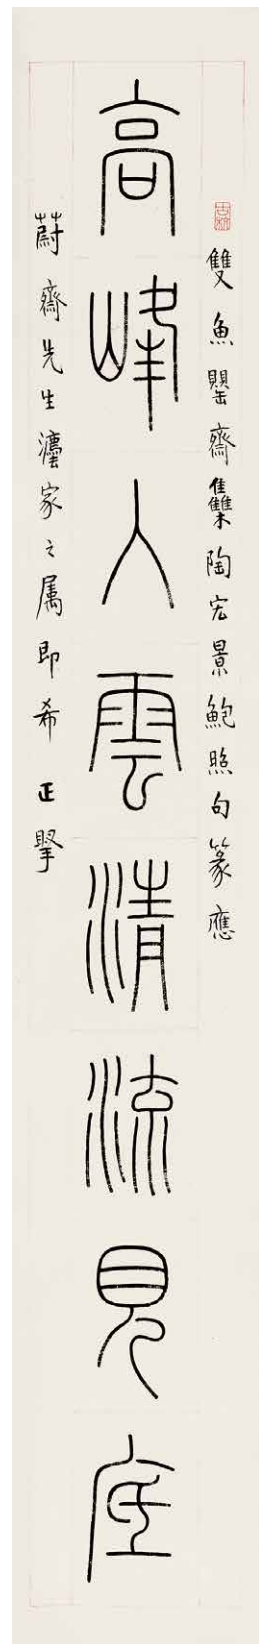 雙魚罌齋集陶宏景鮑照句篆應
高峰入雲清流見底
蔚齋先生灋家之属即希 正擥